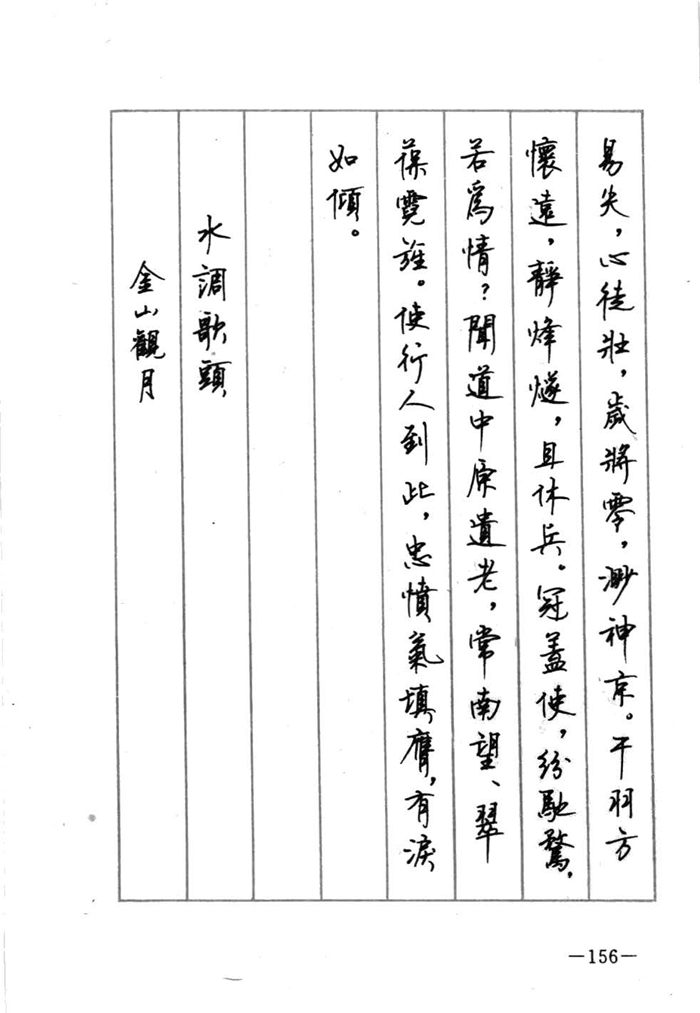 易失，心徒壯，歲將零，渺神京。干羽方
懷遠，靜烽燧，且休兵。冠蓋使，紛馳騖，
若爲情？聞道中原遺老，常南望、翠
葆霓旌。使行人到此，忠憤氣填膺，有淚
如傾。
水調歌頭
金山觀月
—156—